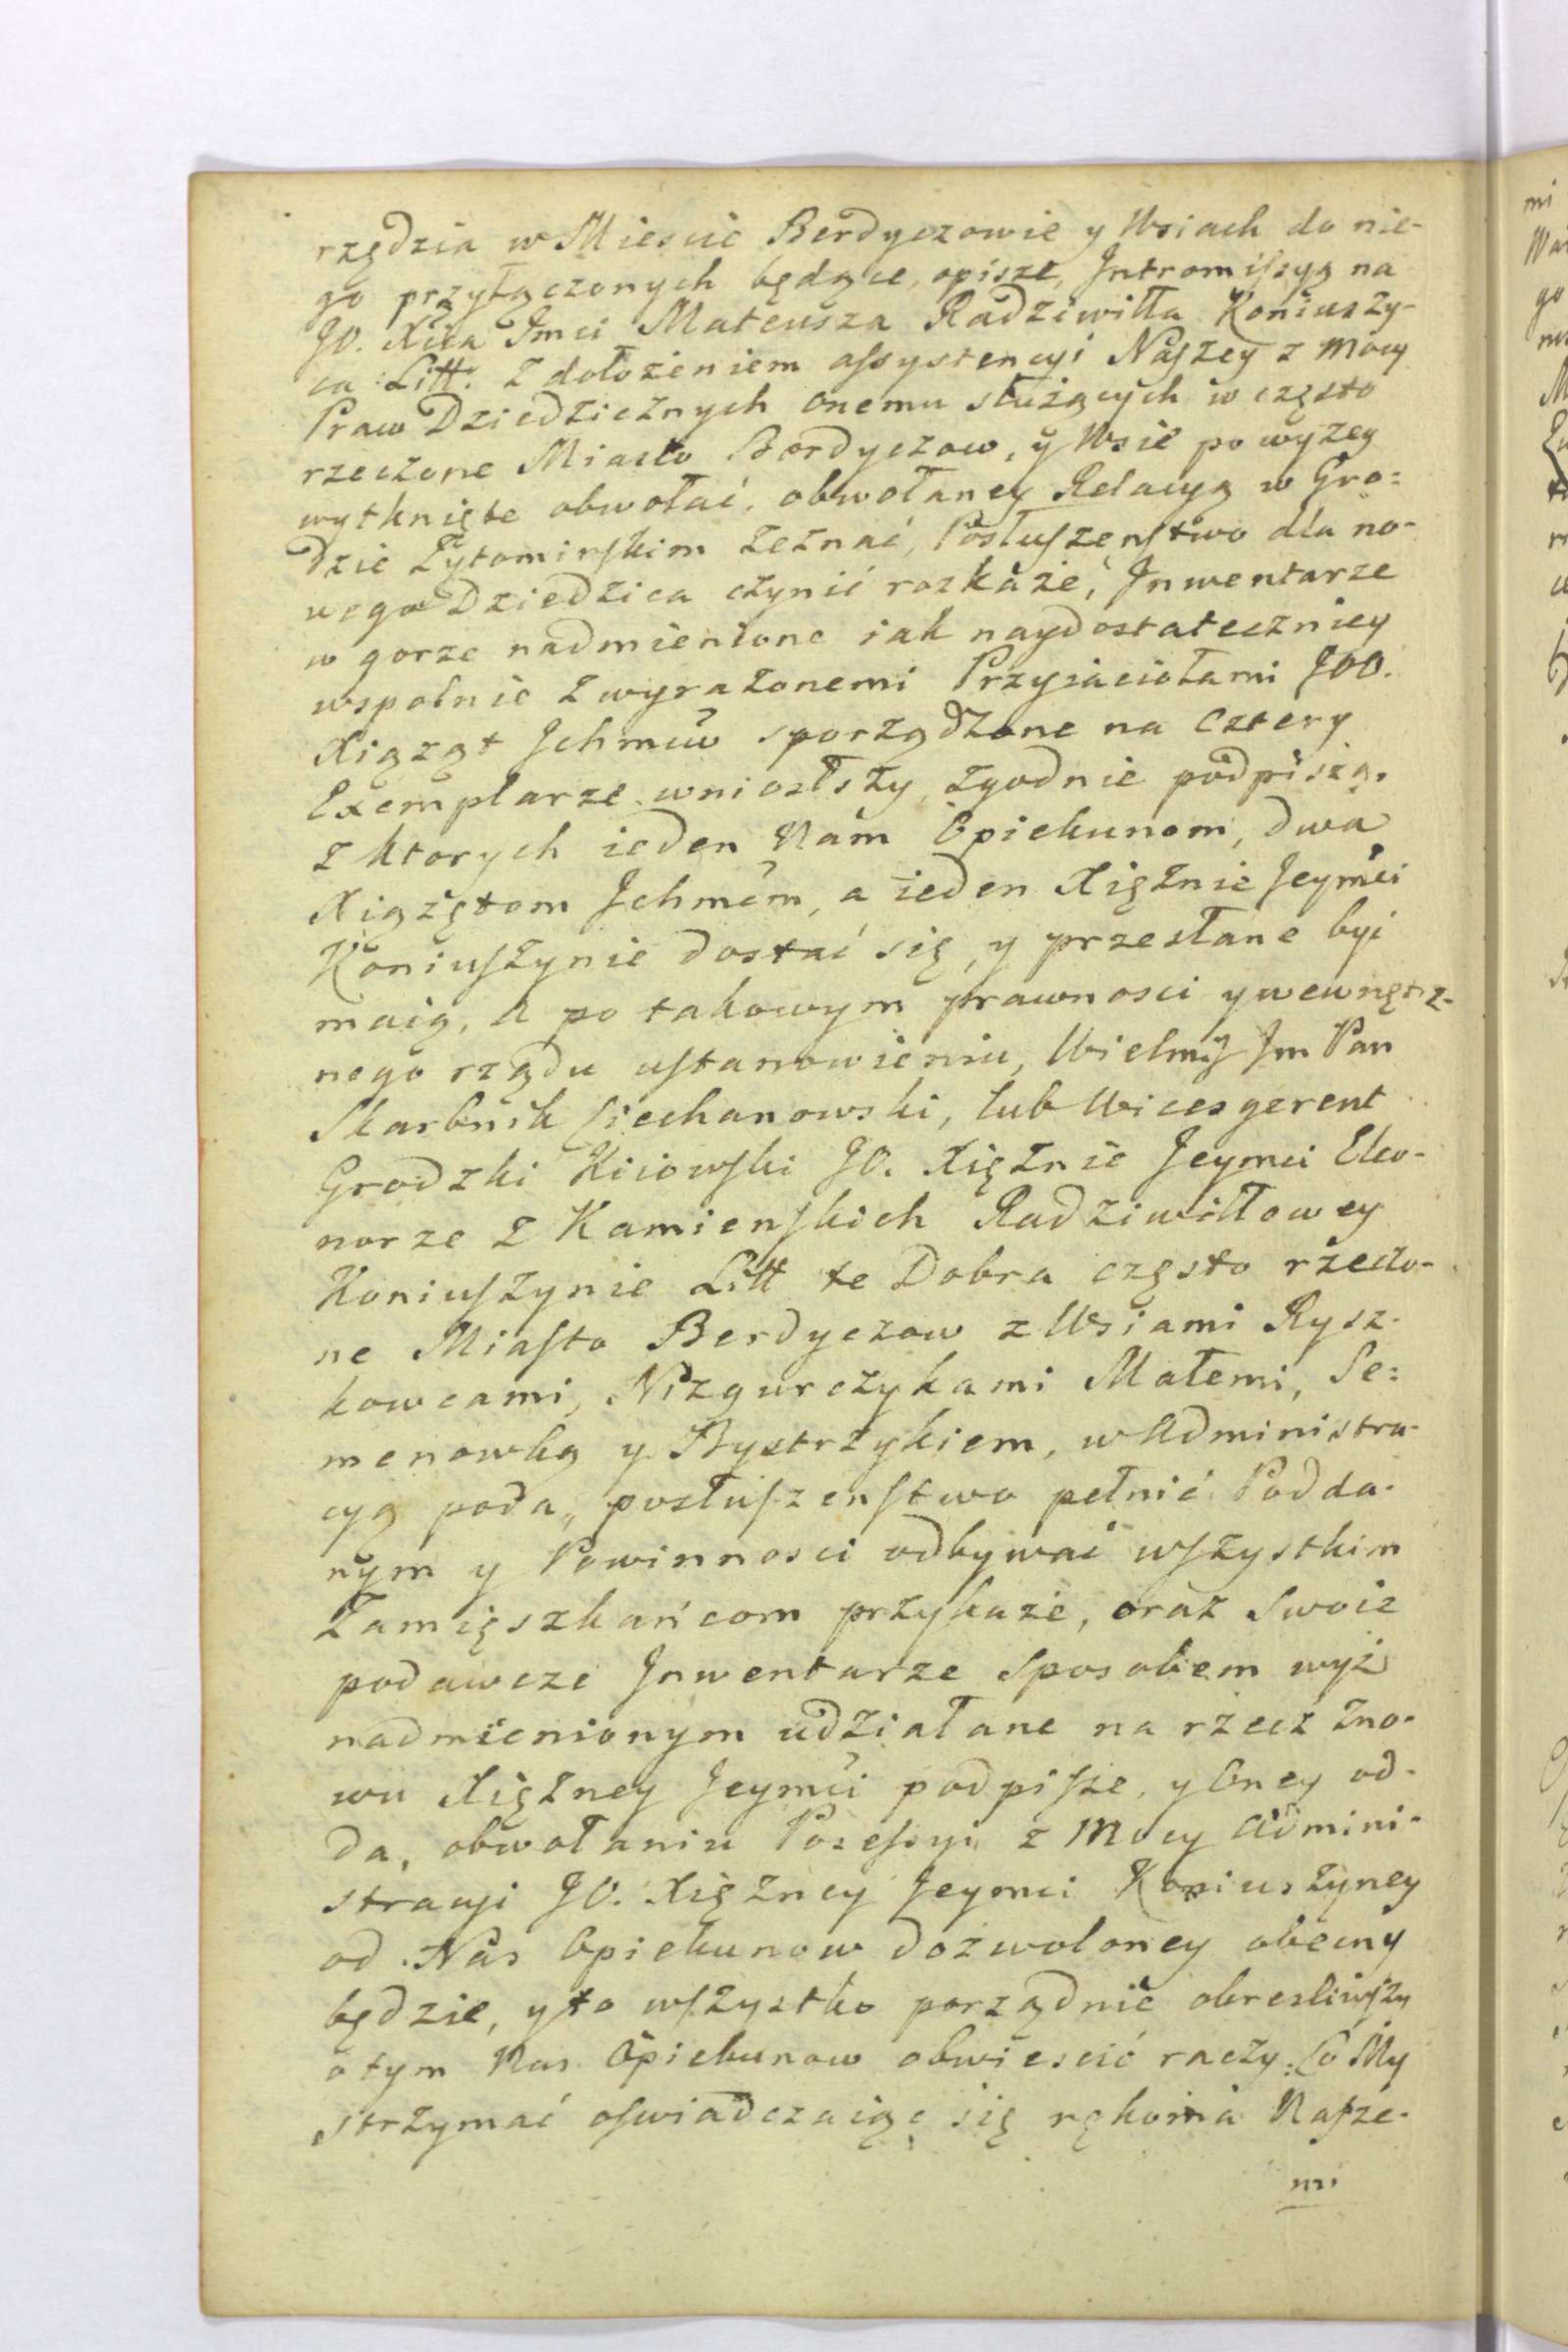 rzędzia w Miescie Berdyczowie y Wsiach do nie-
go przyłączonych będące, opisze, Intromissyą na
JO. Xcia Jmci Mateusza Radziwiłła Koniuszy-
ca Litt: z dołożeniem assystencyi Naszey z mocy
Praw Dziedzicznych onemu służących w często
rzeczone Miasto Berdyczow, y Wsie powyzey
wytknięte obwołać, obwołaney Relacyą w Gro=
dzie Zytomirskim zeznać, Posłuszenstwo dla no-
wego Dziedzica czynić rozkaże, Inwentarze
w gorze nadmienione iak naydostateczniey
wspolnie z wyrażonemi Przyiaciołami JOO.
Xiążąt Jchmciow sporządzone na Cztery
Exemplarze wniosłszy, zgodnie podpiszą,
z ktorych ieden Nam Opiekunom, dwa
Xiążętom Jchmcm, a ieden Xiężnie Jeymci
Koniuszynie dostać się, y przesłane być
maią, A po takowym prawnosci y wewnętrz-
nego rządu ustanowieniu, Wielmy Jm Pan
Skarbnik Ciechanowski, lub Wicesgerent
Grodzki Kiiowski JO. Xiężnie Jeymci Eleo-
norze z Kamienskich Radziwiłłowey
Koniuszynie Litt te Dobra często rzeczo-
ne Miasto Berdyczow z Wsiami Rysz-
kowcami, Nizgurczykami Małemi, Se=
menowką y Bystrzykiem, w Administra-
cyą poda, posłuszenstwo pełnić Podda-
nym y Powinnosci odbywać wszystkim
Zamięszkańcom przykaże, oraz Swoie
podawcze Inwentarze sposobem wyż
nadmienionym udziałane na rzecz zno-
wu Xiężney Jeymci podpisze, y Oney od-
da, obwołaniu Possessyi z Mocy Admini-
stracyi JO. Xiężney Jeymci Koniuszyney
od Nas Opiekunow dozwoloney obecny
będzie, y to wszystko porządnie okresliwszy
o tym Nas Opiekunow obwiescić raczy. Co My
strzymać oswiadczaiąc się rękoma Nasze-
mi